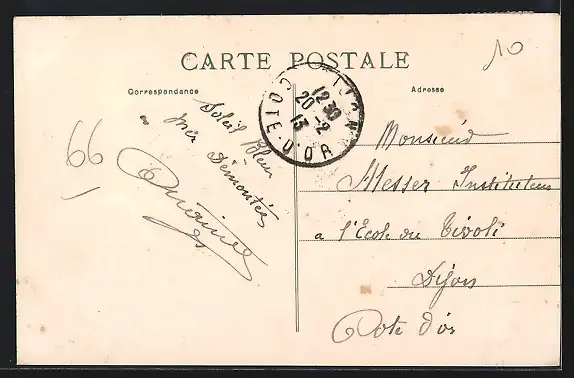 CARTE POSTALE
Correspondance
Adresse
10
DIJON
12 30
20 - 2
13
COTE-D'OR
Soleil Bleu
Mer Démontée
66
Monsieur
Messer Instituteur
a l'Ecole du Tivoli
Dijon
Cote d'or